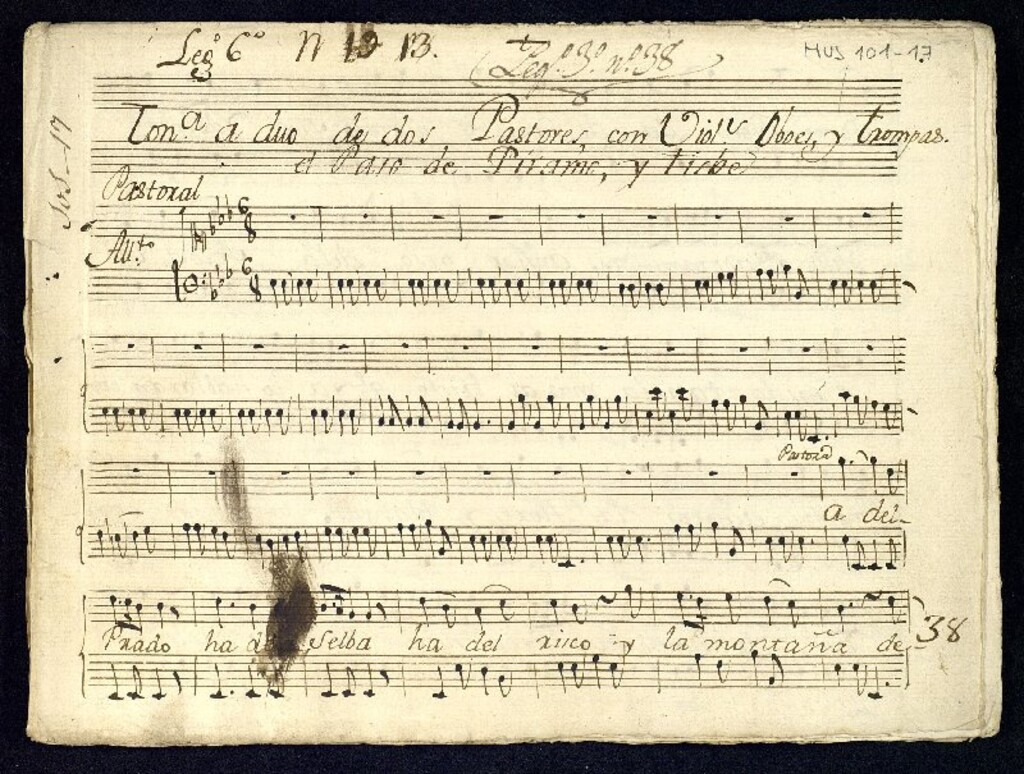 Leg.º 6º N 19 13.
Leg.º 3º n.º 38
MUS 101-17
Ton.ª a duo de dos Pastores, con Viol.s Oboes, y trompas.
el Paso de Pirame, y tisbe
Pastoral
All.to
6 8
6 8
Pastora
a del
Prado ha de Selba ha del risco y la montaña de
38